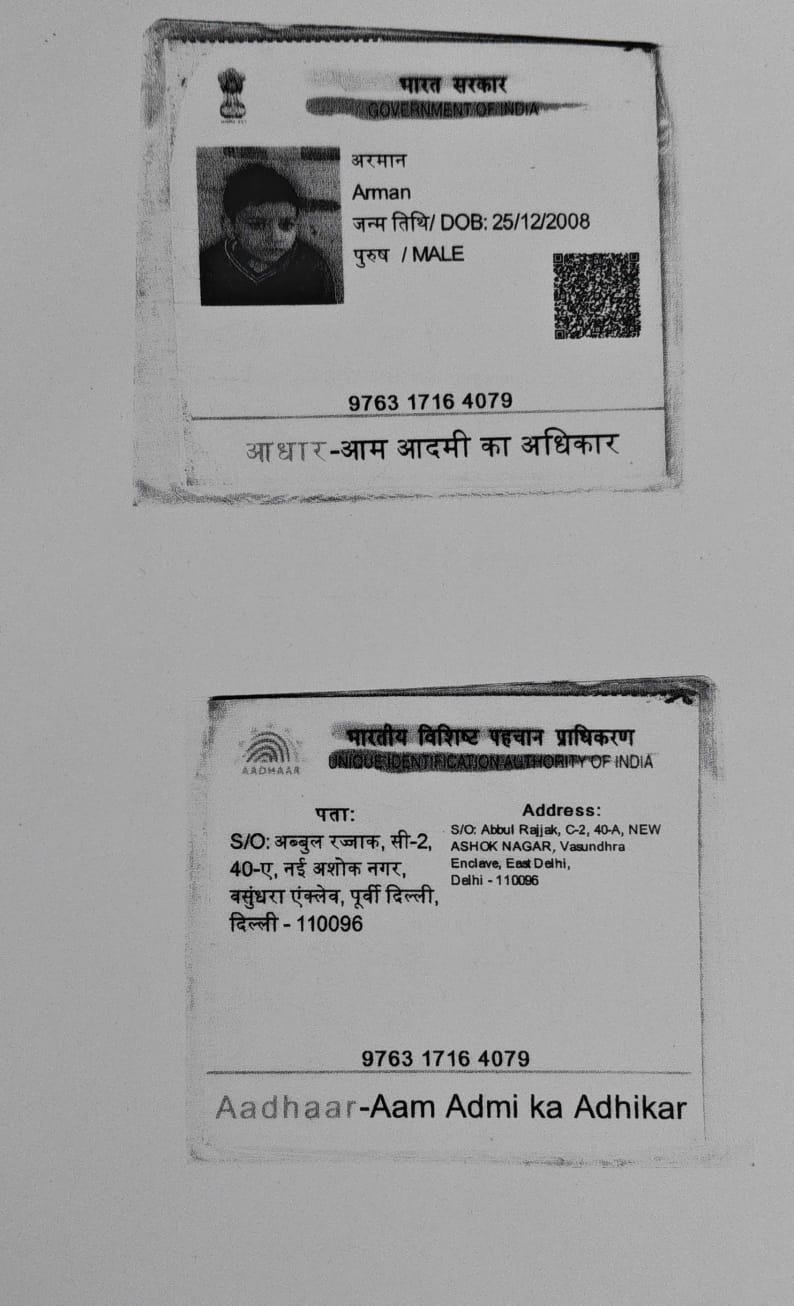 भारत सरकार
GOVERNMENT OF INDIA
अरमान
Arman
जन्म तिथि/ DOB: 25/12/2008
पुरुष / MALE
9763 1716 4079
आधार-आम आदमी का अधिकार
भारतीय विशिष्ट पहचान प्राधिकरण
UNIQUE IDENTIFICATION AUTHORITY OF INDIA
AADHAAR
पता:
S/O: अब्बुल रज्जाक, सी-2,
40-ए, नई अशोक नगर,
वसुंधरा एंक्लेव, पूर्वी दिल्ली,
दिल्ली - 110096
Address:
S/O: Abbul Rajjak, C-2, 40-A, NEW
ASHOK NAGAR, Vasundhra
Enclave, East Delhi,
Delhi - 110096
9763 1716 4079
Aadhaar-Aam Admi ka Adhikar